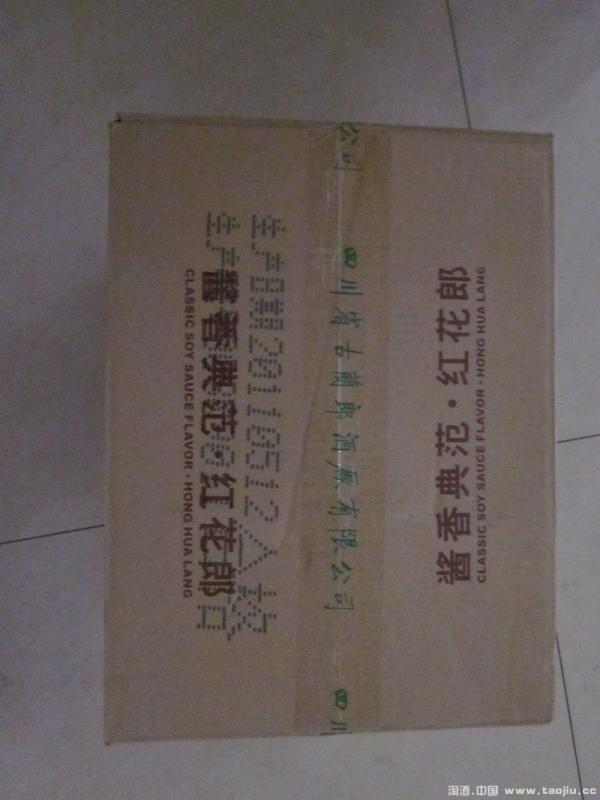 酱香典范·红花郎
CLASSIC SOY SAUCE FLAVOR·HONG HUA LANG
公司 四川省古蔺郎酒厂有限公司 — 四川
生产日期20110512 合格
生产
酱香典范·红花郎
CLASSIC SOY SAUCE FLAVOR·HONG HUA LANG
淘酒.中国 www.taojiu.cc